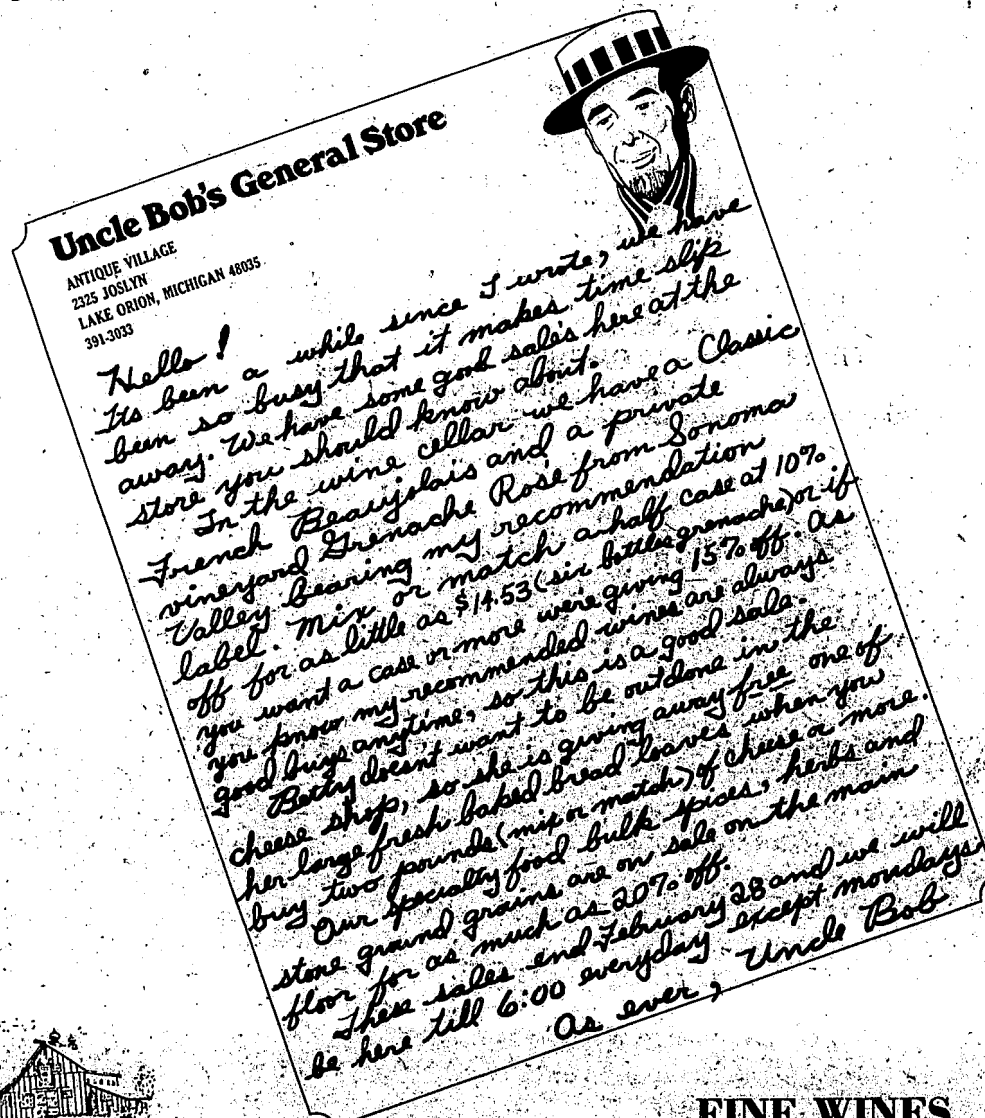 Uncle Bob's General Store
ANTIQUE VILLAGE
2325 JOSLYN
LAKE ORION, MICHIGAN 48035
391-3033
Hello!
Its been a while since I wrote, we have
been so busy that it makes time slip
away. We have some good sales here at the
store you should know about.
In the wine cellar we have a Classic
French Beaujolais and a private
vineyard Grenache Rosé from Sonoma
Valley bearing my recommendation
label. Mix or match a half case at 10%
off for as little as $14.53 (six bottles grenache) or if
you want a case or more we're giving 15% off. As
you know my recommended wines are always
good buys anytime, so this is a good sale.
Betty doesn't want to be outdone in the
cheese shop, so she is giving away free one of
her large fresh baked bread loaves when you
buy two pounds (mix or match) of cheese or more.
Our specialty food bulk spices, herbs and
stone ground grains are on sale on the main
floor for as much as 20% off.
These sales end February 28 and we will
be here till 6:00 everyday except mondays.
As ever,
Uncle Bob
FINE WINES